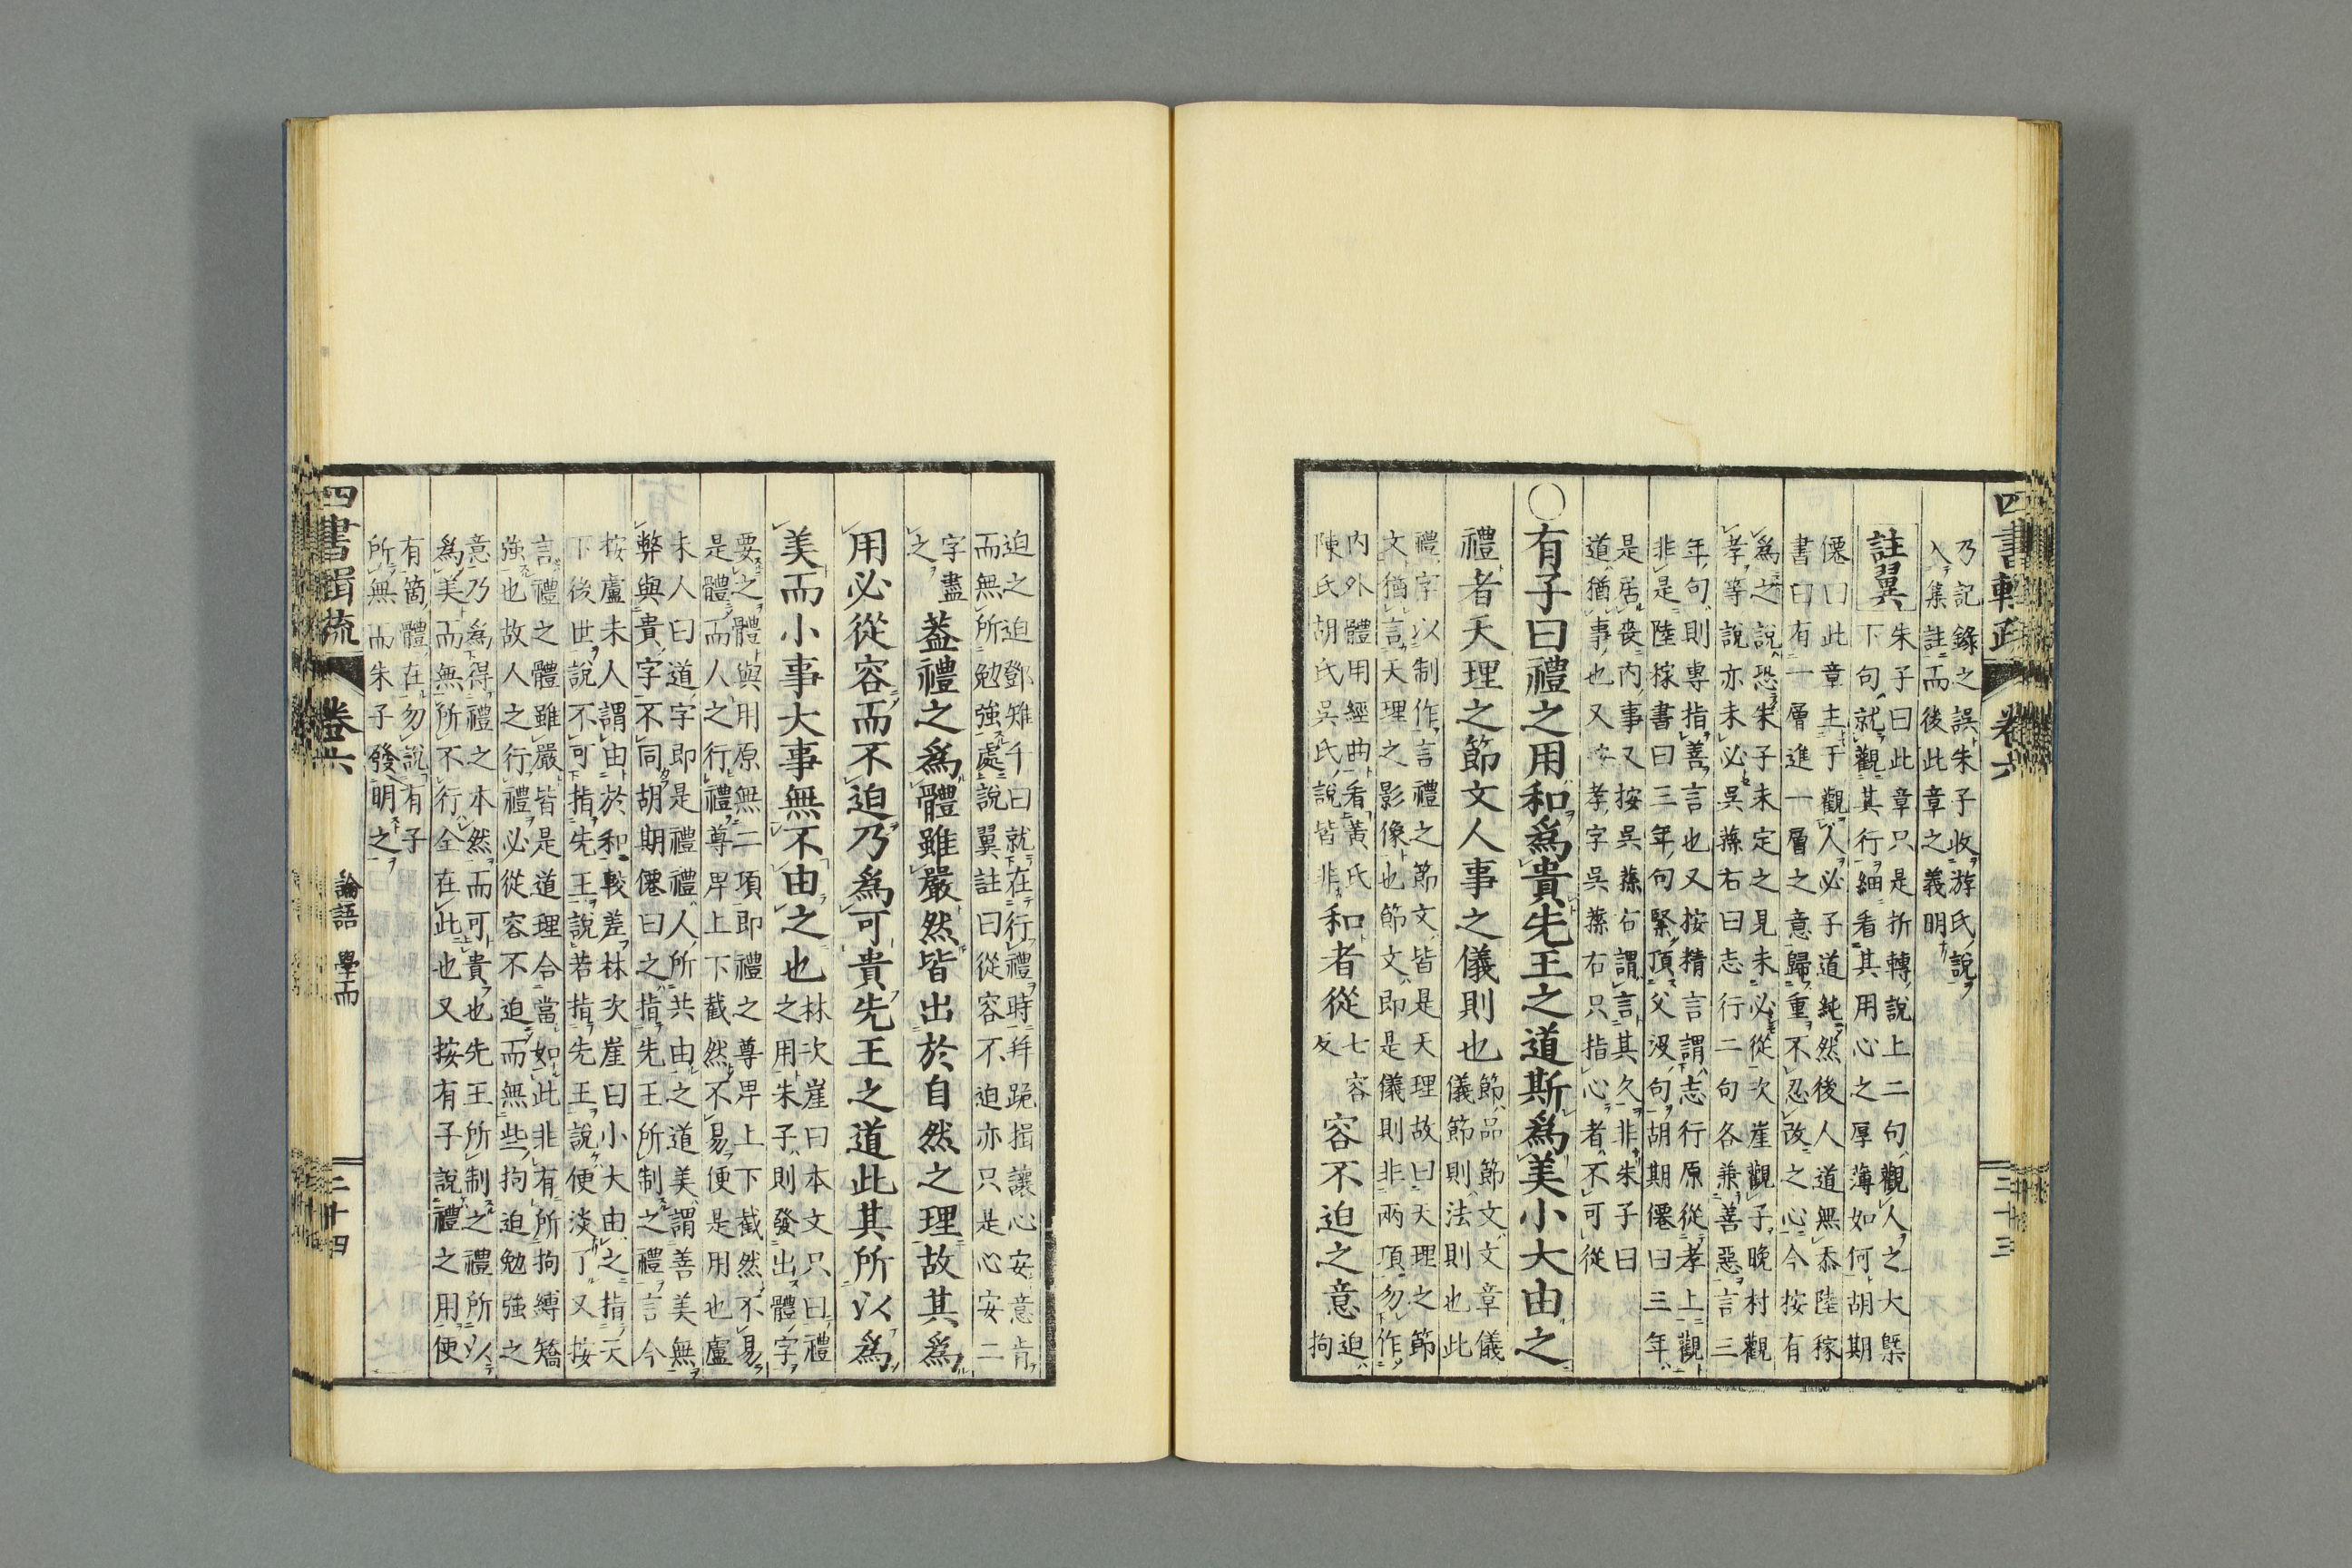 四書輯疏 卷六 三十三
乃記錄之誤朱子收游氏說
入集註而後此章之義明
註翼
朱子曰此章只是折轉說上二句觀人之大槩
下句就觀其行細看其用心之厚薄如何胡期
僊曰此章主于觀人必子道純然後人道無忝陸稼
書曰有一層進一層之意歸重不忍改之心今按有
爲之說恐朱子未定之見未必從次崖觀子晚村觀
孝等說亦未必吳蓀右曰志行二句各兼善惡言三
年句則專指善言也又按精言謂志行原從孝上觀
非是陸稼書曰三年句緊頂父沒句胡期僊曰三年
是居喪內事又按吳蓀右謂言其久非朱子曰
道猶事也又按孝字吳蓀右只指心者不可從
○有子曰禮之用和爲貴先王之道斯爲美小大由之
禮者天理之節文人事之儀則也
節品節文文章儀
儀節則法則也此
禮字以制作言禮之節文皆是天理故曰天理之節
文猶言天理之影像也節文即是儀則非兩項勿作
內外體用經曲看黃氏
陳氏胡氏吳氏說皆非
和者從
七容
反
容不迫之意
迫
拘
迫之迫鄧雉千曰就在行禮時幷跪揖讓心安意肯
而無所勉強處說翼註曰從容不迫亦只是心安二
字盡
之
蓋禮之爲體雖嚴然皆出於自然之理故其爲
用必從容而不迫乃爲可貴先王之道此其所以爲
美而小事大事無不由之也
林次崖曰本文只曰禮
之用朱子則發出體字
要之體與用原無二項即禮之尊卑上下截然不易
是體而人之行禮尊卑上下截然不易便是用也盧
未人曰道字即是禮禮人所共由之道美謂善美無
弊與貴字不同胡期僊曰之指先王所制之禮言今
按盧未人謂由於和較差林次崖曰小大由之指天
下後世說不可指先王說若指先王說便淡了又按
言禮之體雖嚴皆是道理合當如此非有所拘縛矯
強也故人之行禮必從容不迫而無些拘迫勉強之
意乃爲得禮之本然而可貴也先王所制之禮所以
爲美而無所不行全在此也又按有子說禮之用便
有箇體在勿說有子
所無而朱子發明之
四書輯疏 卷六 論語 學而 三十四